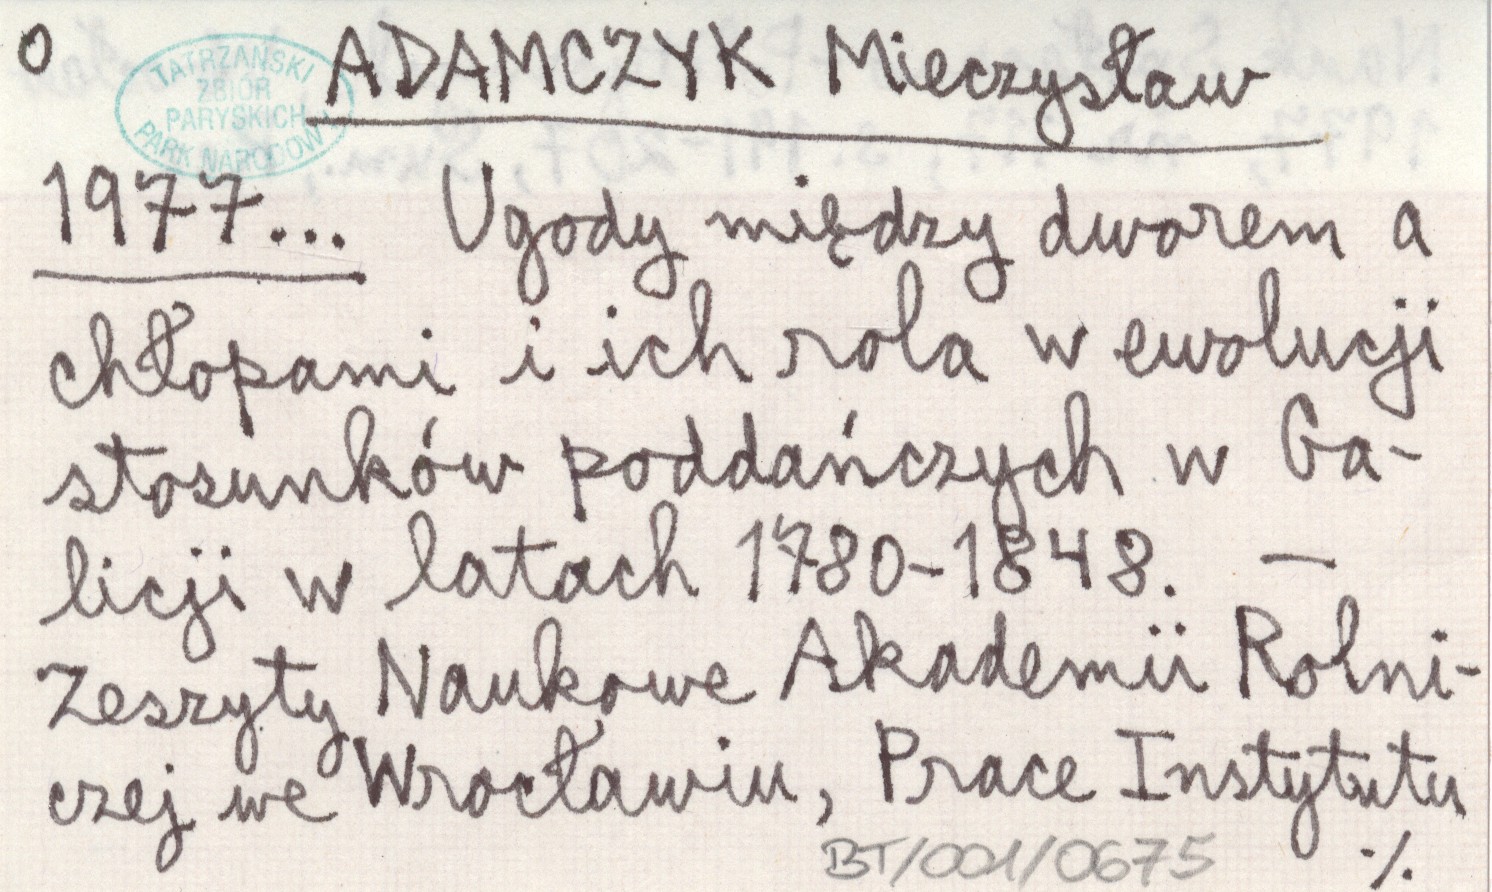 o ADAMCZYK Mieczysław
TATRZAŃSKI
ZBIÓR
PARYSKICH
PARK NARODOWY
1977... Ugody między dworem a
chłopami i ich rola w ewolucji
stosunków poddańczych w Ga-
licji w latach 1780-1848. —
Zeszyty Naukowe Akademii Rolni-
czej we Wrocławiu, Prace Instytutu
BT/001/0675 ·/.